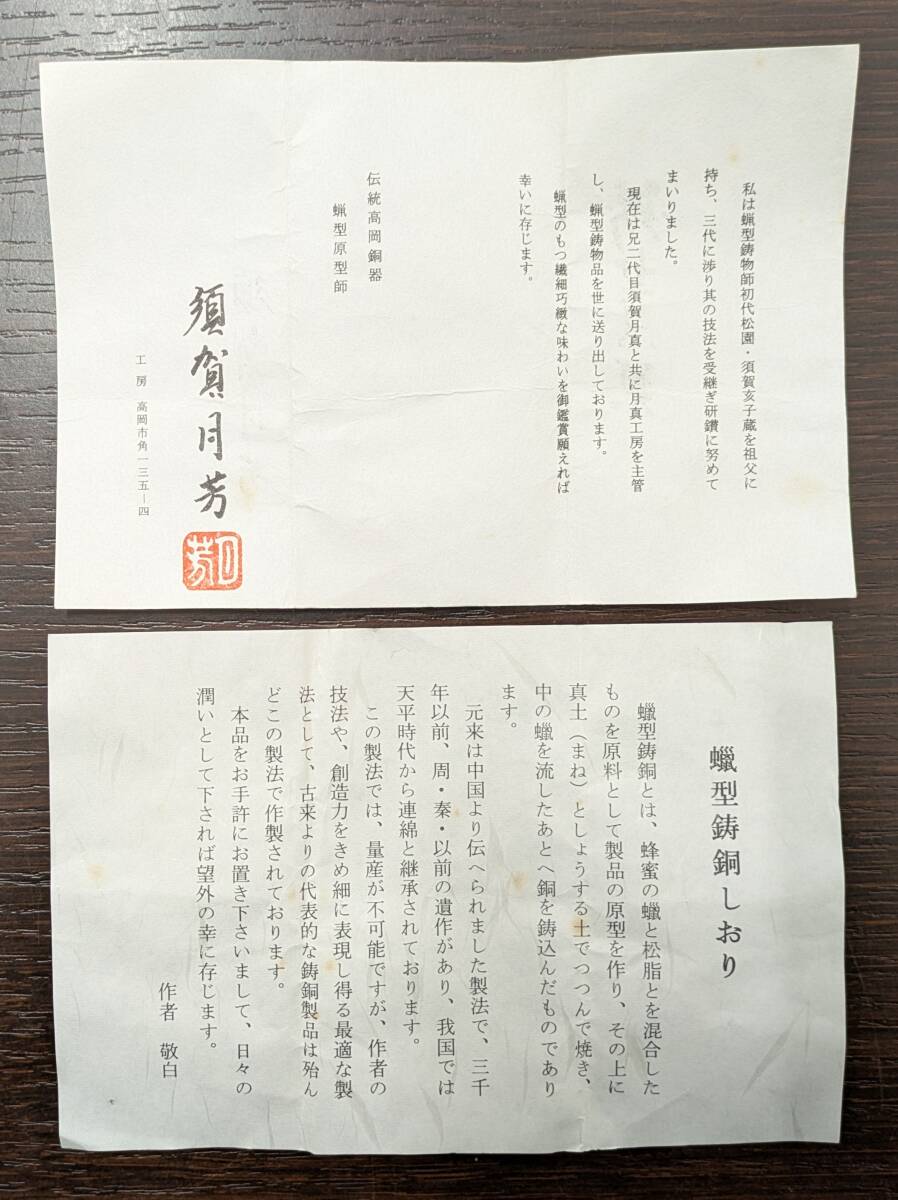 私は蝋型鋳物師初代松園・須賀亥子蔵を祖父に
持ち、三代に渉り其の技法を受継ぎ研鑽に努めて
まいりました。
現在は兄二代目須賀月真と共に月真工房を主管
し、蝋型鋳物品を世に送り出しております。
蝋型のもつ繊細巧緻な味わいを御鑑賞願えれば
幸いに存じます。
伝統高岡銅器
蝋型原型師
須賀月芳
月芳
工房 高岡市角一三五ー四
蠟型鋳銅しおり
蠟型鋳銅とは、蜂蜜の蠟と松脂とを混合した
ものを原料として製品の原型を作り、その上に
真土(まね)としょうする土でつつんで焼き、
中の蠟を流したあとへ銅を鋳込んだものであり
ます。
元来は中国より伝へられました製法で、三千
年以前、周・秦・以前の遺作があり、我国では
天平時代から連綿と継承されております。
この製法では、量産が不可能ですが、作者の
技法や、創造力をきめ細に表現し得る最適な製
法として、古来よりの代表的な鋳銅製品は殆ん
どこの製法で作製されております。
本品をお手許にお置き下さいまして、日々の
潤いとして下されば望外の幸に存じます。
作者 敬白